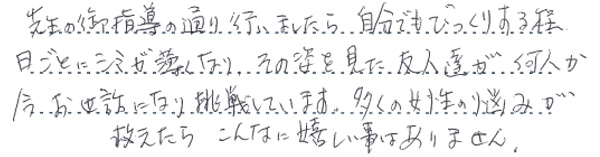 先生の御指導の通り行いましたら、自分でもびっくりする程
日ごとにシミが薄くなり、その姿を見た友人達が何人か
今お世話になり挑戦しています。多くの女性の悩みが
救えたら こんなに嬉しい事はありません。